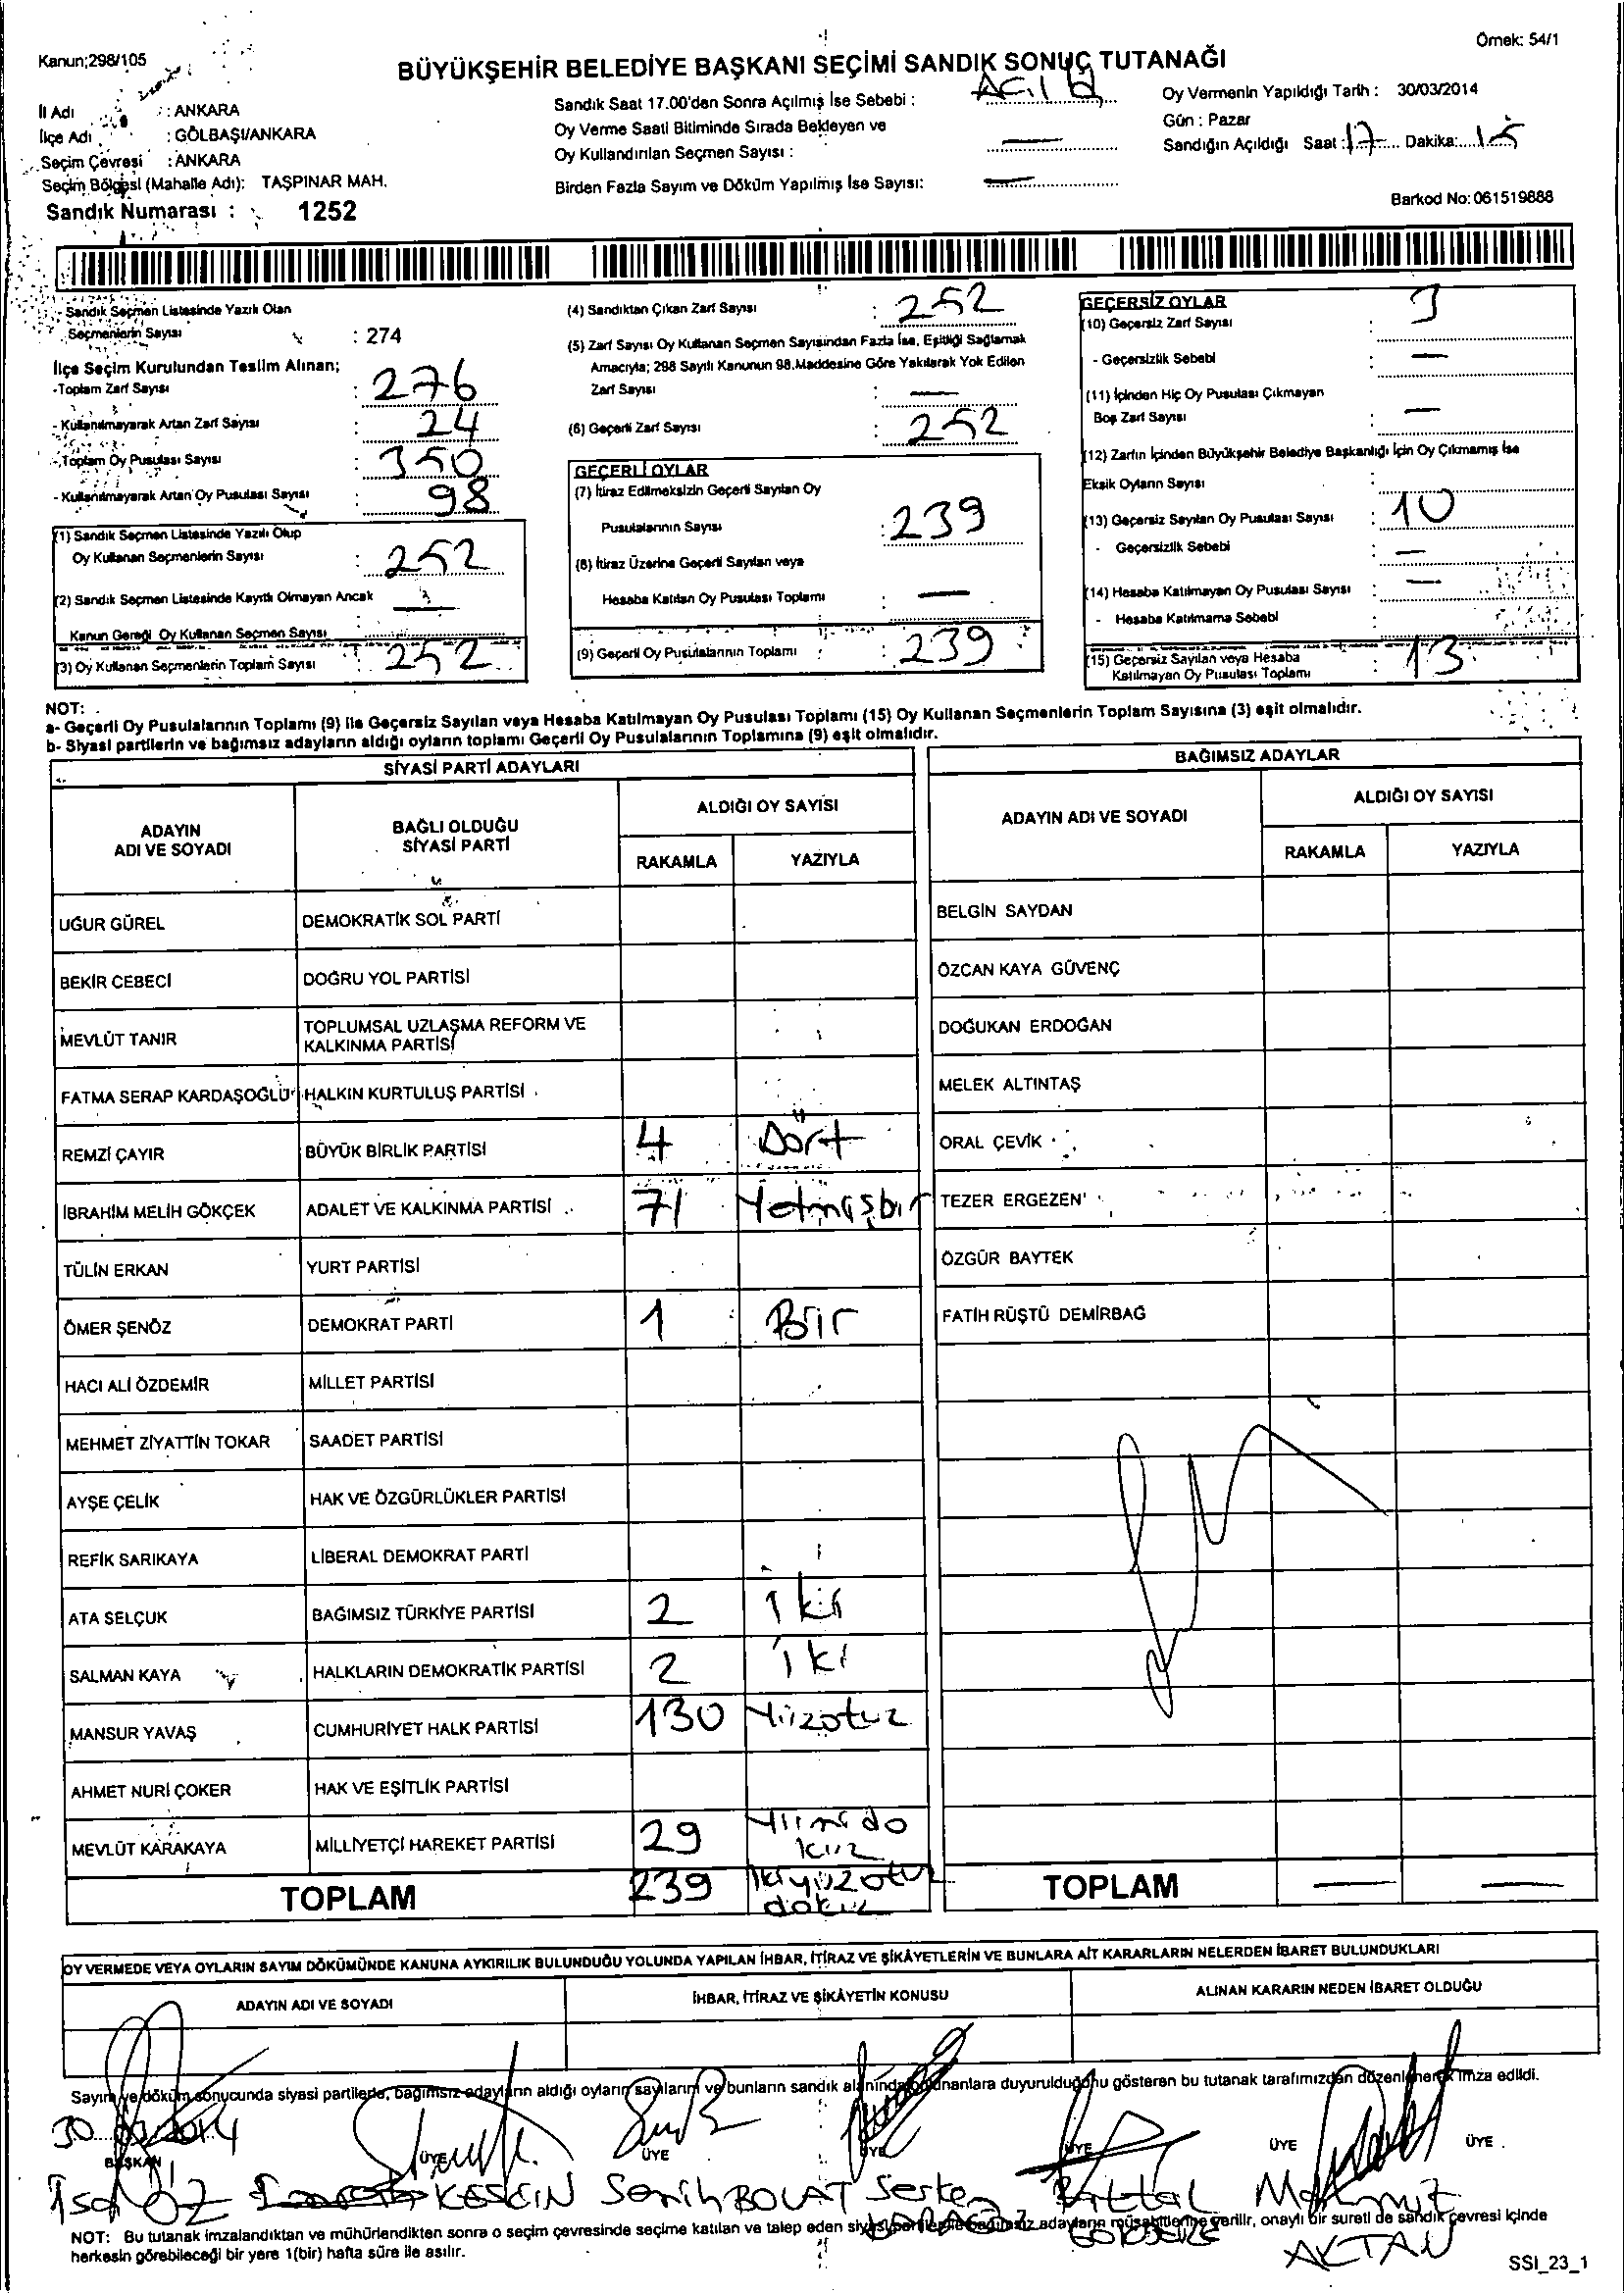 Kanun;298/105
Örnek: 54/1
BÜYÜKŞEHİR BELEDİYE BAŞKANI SEÇİMİ SANDIK SONUÇ TUTANAĞI
İl Adı : ANKARA
İlçe Adı : GÖLBAŞI/ANKARA
Seçim Çevresi : ANKARA
Seçim Bölgesi (Mahalle Adı): TAŞPINAR MAH.
Sandık Numarası : 1252
Sandık Saat 17.00'den Sonra Açılmış İse Sebebi :
Oy Verme Saati Bitiminde Sırada Bekleyen ve
Oy Kullandırılan Seçmen Sayısı : —
Birden Fazla Sayım ve Döküm Yapılmış İse Sayısı: —
Oy Vermenin Yapıldığı Tarih : 30/03/2014
Gün : Pazar
Sandığın Açıldığı Saat : 17 Dakika: 15
Barkod No: 061519888
- Sandık Seçmen Listesinde Yazılı Olan
Seçmenlerin Sayısı : 274
İlçe Seçim Kurulundan Teslim Alınan;
-Toplam Zarf Sayısı : 276
- Kullanılmayarak Artan Zarf Sayısı : 24
- Toplam Oy Pusulası Sayısı : 350
- Kullanılmayarak Artan Oy Pusulası Sayısı : 98
(1) Sandık Seçmen Listesinde Yazılı Olup
Oy Kullanan Seçmenlerin Sayısı : 252
(2) Sandık Seçmen Listesinde Kayıtlı Olmayan Ancak
Kanun Gereği Oy Kullanan Seçmen Sayısı —
(3) Oy Kullanan Seçmenlerin Toplam Sayısı : 252
(4) Sandıktan Çıkan Zarf Sayısı : 252
(5) Zarf Sayısı Oy Kullanan Seçmen Sayısından Fazla İse, Eşitliği Sağlamak
Amacıyla; 298 Sayılı Kanunun 98.Maddesine Göre Yakılarak Yok Edilen
Zarf Sayısı : —
(6) Geçerli Zarf Sayısı : 252
GEÇERLİ OYLAR
(7) İtiraz Edilmeksizin Geçerli Sayılan Oy
Pusulalarının Sayısı : 239
(8) İtiraz Üzerine Geçerli Sayılan veya
Hesaba Katılan Oy Pusulası Toplamı : —
(9) Geçerli Oy Pusulalarının Toplamı : 239
GEÇERSİZ OYLAR
(10) Geçersiz Zarf Sayısı : 3
- Geçersizlik Sebebi : —
(11) İçinden Hiç Oy Pusulası Çıkmayan
Boş Zarf Sayısı : —
(12) Zarfın İçinden Büyükşehir Belediye Başkanlığı İçin Oy Çıkmamış İse
Eksik Oyların Sayısı :
(13) Geçersiz Sayılan Oy Pusulası Sayısı : 10
- Geçersizlik Sebebi : —
(14) Hesaba Katılmayan Oy Pusulası Sayısı : —
- Hesaba Katılmama Sebebi :
(15) Geçersiz Sayılan veya Hesaba
Katılmayan Oy Pusulası Toplamı : 13
NOT:
a- Geçerli Oy Pusulalarının Toplamı (9) ile Geçersiz Sayılan veya Hesaba Katılmayan Oy Pusulası Toplamı (15) Oy Kullanan Seçmenlerin Toplam Sayısına (3) eşit olmalıdır.
b- Siyasi partilerin ve bağımsız adayların aldığı oyların toplamı Geçerli Oy Pusulalarının Toplamına (9) eşit olmalıdır.
SİYASİ PARTİ ADAYLARI
ADAYIN
ADI VE SOYADI
BAĞLI OLDUĞU
SİYASİ PARTİ
ALDIĞI OY SAYISI
RAKAMLA YAZIYLA
UĞUR GÜREL DEMOKRATİK SOL PARTİ
BEKİR CEBECİ DOĞRU YOL PARTİSİ
MEVLÜT TANIR TOPLUMSAL UZLAŞMA REFORM VE
KALKINMA PARTİSİ
FATMA SERAP KARDAŞOĞLU HALKIN KURTULUŞ PARTİSİ
REMZİ ÇAYIR BÜYÜK BİRLİK PARTİSİ 4 Dört
İBRAHİM MELİH GÖKÇEK ADALET VE KALKINMA PARTİSİ 71 Yetmişbir
TÜLİN ERKAN YURT PARTİSİ
ÖMER ŞENÖZ DEMOKRAT PARTİ 1 Bir
HACI ALİ ÖZDEMİR MİLLET PARTİSİ
MEHMET ZİYATTİN TOKAR SAADET PARTİSİ
AYŞE ÇELİK HAK VE ÖZGÜRLÜKLER PARTİSİ
REFİK SARIKAYA LİBERAL DEMOKRAT PARTİ
ATA SELÇUK BAĞIMSIZ TÜRKİYE PARTİSİ 2 iki
SALMAN KAYA HALKLARIN DEMOKRATİK PARTİSİ 2 iki
MANSUR YAVAŞ CUMHURİYET HALK PARTİSİ 130 Yüzotuz
AHMET NURİ ÇOKER HAK VE EŞİTLİK PARTİSİ
MEVLÜT KARAKAYA MİLLİYETÇİ HAREKET PARTİSİ 29 Yirmido
kuz
TOPLAM 239 ikiyüzotuz
dokuz
BAĞIMSIZ ADAYLAR
ADAYIN ADI VE SOYADI
ALDIĞI OY SAYISI
RAKAMLA YAZIYLA
BELGİN SAYDAN
ÖZCAN KAYA GÜVENÇ
DOĞUKAN ERDOĞAN
MELEK ALTINTAŞ
ORAL ÇEVİK
TEZER ERGEZEN
ÖZGÜR BAYTEK
FATİH RÜŞTÜ DEMİRBAĞ
TOPLAM — —
OY VERMEDE VEYA OYLARIN SAYIM DÖKÜMÜNDE KANUNA AYKIRILIK BULUNDUĞU YOLUNDA YAPILAN İHBAR, İTİRAZ VE ŞİKÂYETLERİN VE BUNLARA AİT KARARLARIN NELERDEN İBARET BULUNDUKLARI
ADAYIN ADI VE SOYADI İHBAR, İTİRAZ VE ŞİKÂYETİN KONUSU ALINAN KARARIN NEDEN İBARET OLDUĞU
Sayım ve döküm sonucunda siyasi partilerle, bağımsız adayların aldığı oyların sayılarını ve bunların sandık alanında bulunanlara duyurulduğunu gösteren bu tutanak tarafımızdan düzenlenerek imza edildi.
BAŞKAN ÜYE ÜYE ÜYE ÜYE ÜYE ÜYE
İsa ÖZ KESKİN Semih BOLAT Serkan Mahmut
AKTAN
NOT: Bu tutanak imzalandıktan ve mühürlendikten sonra o seçim çevresinde seçime katılan ve talep eden siyasi partilerle bağımsız adayların müşahitlerine verilir, onaylı bir sureti de sandık çevresi içinde
herkesin görebileceği bir yere 1(bir) hafta süre ile asılır.
SSI_23_1